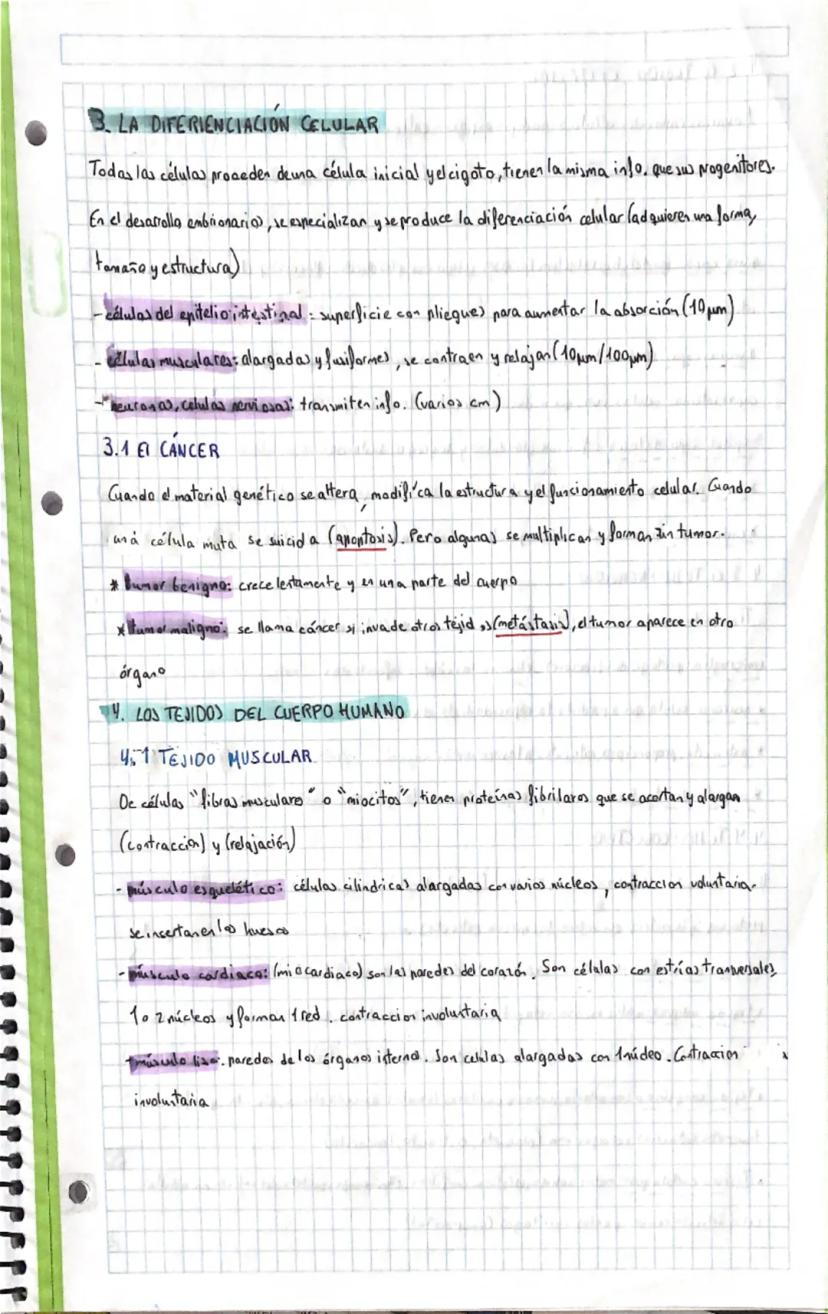 3. LA DIFERIENCIACIÓN CELULAR
Todas las células proceden de una célula inicial y el cigoto, tienen la misma info. que sus progenitores.
En el desarrollo embrionario, se especializan y se produce la diferenciación celular (adquieren una forma,
tamaño y estructura)
- células del epitelio intestinal: superficie con pliegues para aumentar la absorción (10 µm)
- células musculares: alargadas y fusiformes, se contraen y relajan (10µm/100µm)
- neuronas, celulas nerviosas: transmiten info. (varios cm)
3.1 El CÁNCER
Cuando el material genético se altera, modifica la estructura y el funcionamiento celular. Cuando
una célula muta se suicida (apoptosis). Pero algunas se multiplican y forman un tumor.
* tumor benigno: crece lentamente y en una parte del cuerpo
* tumor maligno: se llama cáncer si invade otros tejidos (metástasis), el tumor aparece en otro
órgano
4. LOS TEJIDOS DEL CUERPO HUMANO
4.1 TEJIDO MUSCULAR
De células "fibras musculares" o "miocitos", tienen proteínas fibrilares que se acortan y alargan
(contraccion) y (relajación)
- músculo esquelético: células cilindricas alargadas con varios núcleos, contraccion voluntaria.
se insertan en los huesos
- músculo cardiaco: (miocardiaco) son las paredes del corazón. Son células con estrías transversales,
1 o 2 núcleos y forman 1 red. contraccion involuntaria
- músculo liso: paredes de los órganos internos. Son celulas alargadas con 1 núcleo. Contraccion
involuntaria